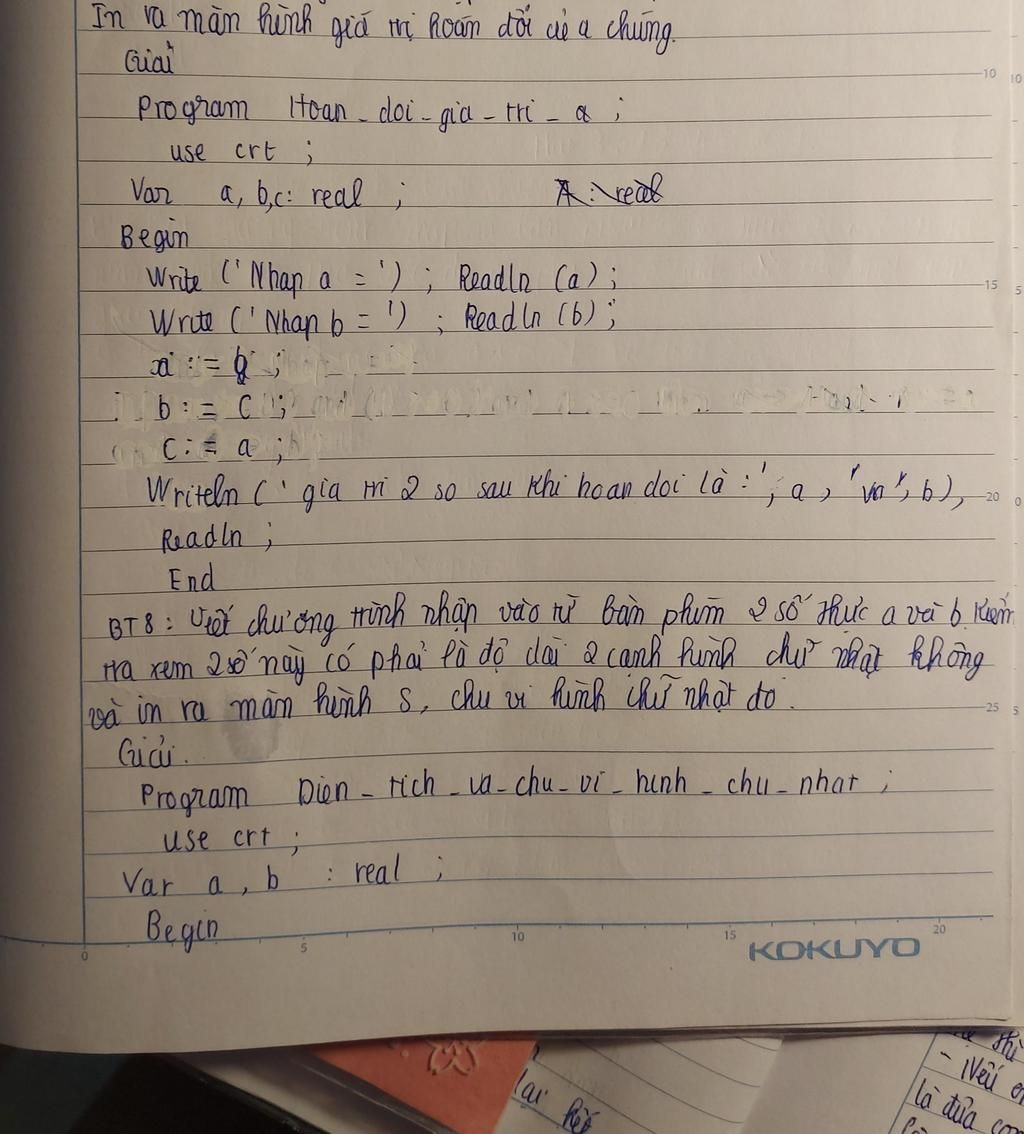 In ra màn hình giá trị hoán đổi củ a chúng.
Giải
10 10
Program Hoan_doi_gia_tri_a ;
use crt ;
Var a, b,c: real ; A : real
Begin
Write (' Nhap a = ') ; Readln (a) ;
15 5
Write (' Nhap b = ') ; Readln (b) ;
a := b ;
b := c ;
c := a ;
Writeln (' gia tri 2 so sau khi hoan doi là :' , a , ' va ', b) ,
20 0
Readln ;
End
BT8 : Viết chương trình nhập vào từ bàn phím 2 số thực a và b. Kiểm
tra xem 2 số này có phải là độ dài 2 cạnh hình chữ nhật không
và in ra màn hình S, chu vi hình chữ nhật đo.
25 5
Giải.
Program Dien_tich_va_chu_vi_hinh_chu_nhat ;
use crt ;
Var a , b : real ;
Begin
0 5 10 15 20
KOKUYO
thì
- Nếu
lại kết
là đứa con